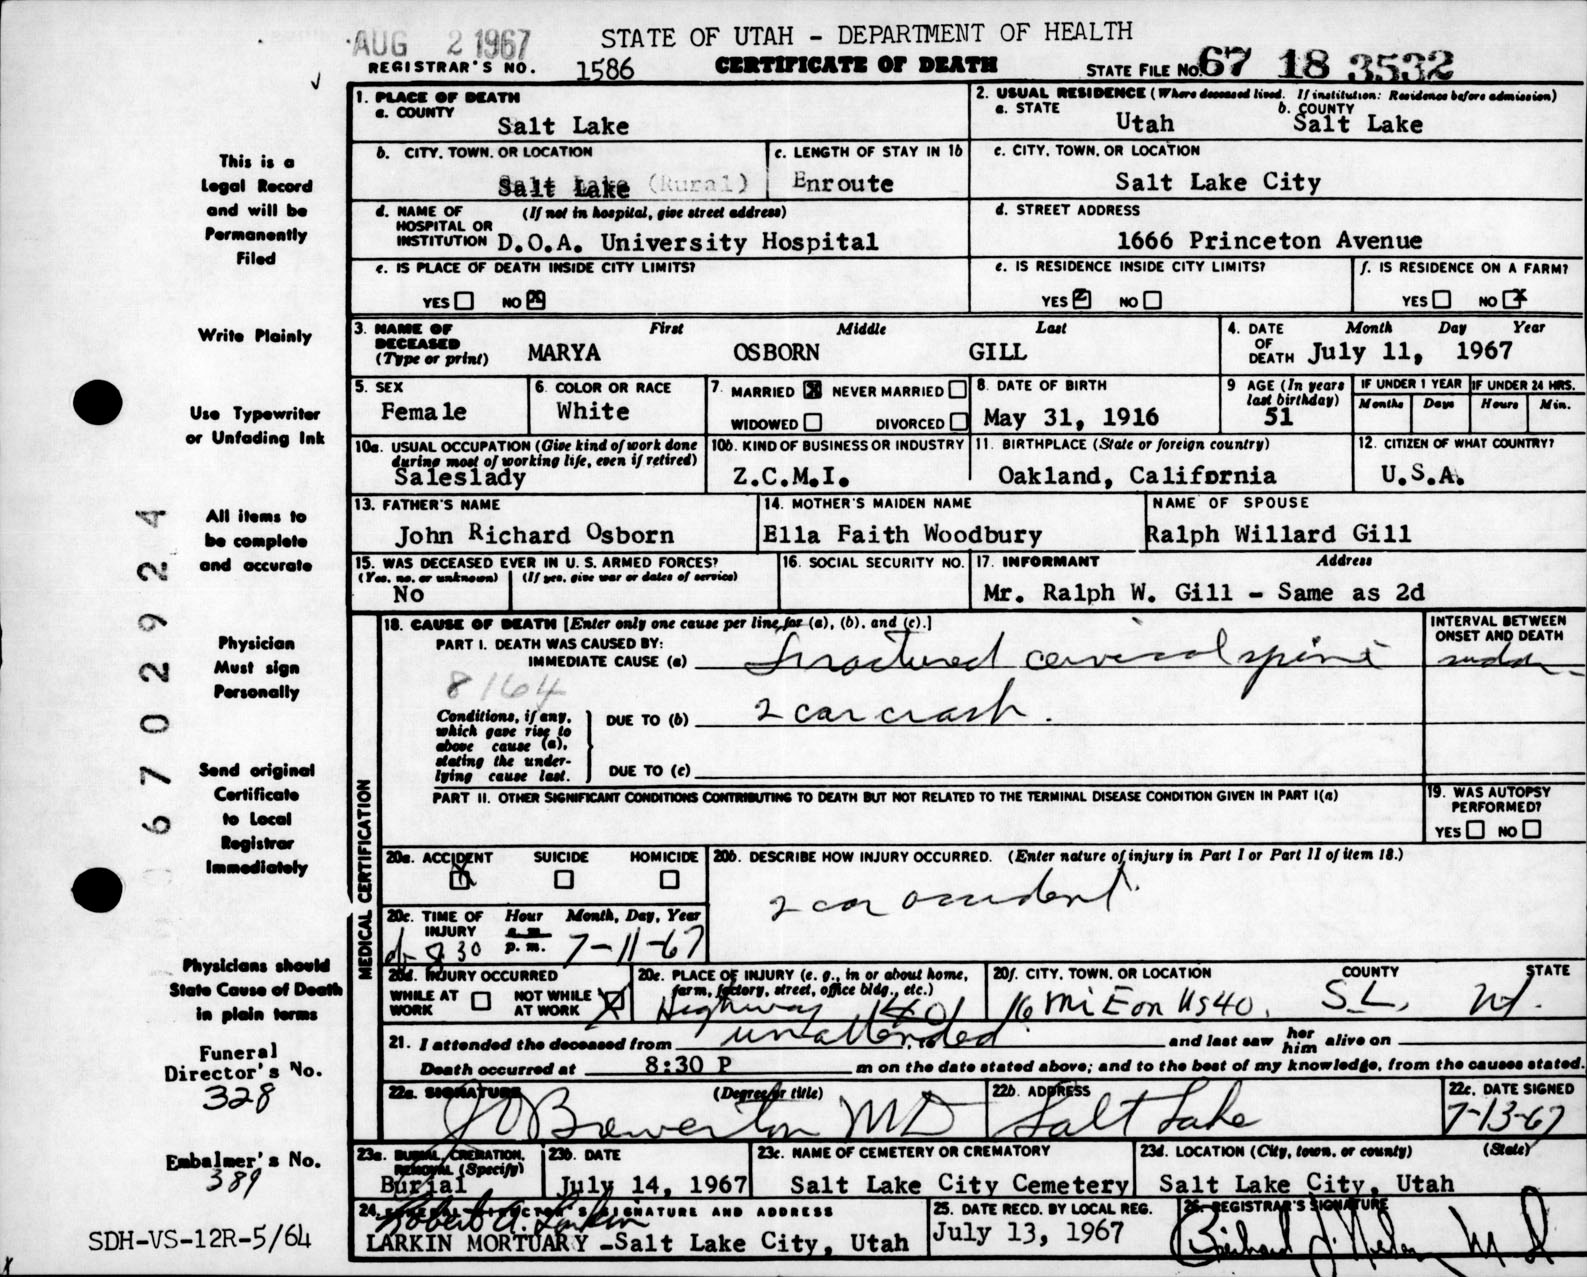 AUG 2 1967
STATE OF UTAH - DEPARTMENT OF HEALTH
REGISTRAR'S NO. 1586
CERTIFICATE OF DEATH
STATE FILE NO. 67 18 3532
This is a
Legal Record
and will be
Permanently
Filed
Write Plainly
Use Typewriter
or Unfading Ink
All items to
be complete
and accurate
Physician
Must sign
Personally
Send original
Certificate
to Local
Registrar
Immediately
Physicians should
State Cause of Death
in plain terms
Funeral
Director's No.
328
Embalmer's No.
389
SDH-VS-12R-5/64
6702924
1. PLACE OF DEATH
a. COUNTY
Salt Lake
2. USUAL RESIDENCE (Where deceased lived. If institution: Residence before admission)
a. STATE
Utah
b. COUNTY
Salt Lake
b. CITY, TOWN, OR LOCATION
Salt Lake (Rural)
c. LENGTH OF STAY IN 1b
Enroute
c. CITY, TOWN, OR LOCATION
Salt Lake City
d. NAME OF HOSPITAL OR INSTITUTION
(If not in hospital, give street address)
D.O.A. University Hospital
d. STREET ADDRESS
1666 Princeton Avenue
e. IS PLACE OF DEATH INSIDE CITY LIMITS?
YES NO X
e. IS RESIDENCE INSIDE CITY LIMITS?
YES NO
f. IS RESIDENCE ON A FARM?
YES NO X
3. NAME OF DECEASED
(Type or print)
First Middle Last
MARYA OSBORN GILL
4. DATE OF DEATH
Month Day Year
July 11, 1967
5. SEX
Female
6. COLOR OR RACE
White
7. MARRIED X NEVER MARRIED
WIDOWED DIVORCED
8. DATE OF BIRTH
May 31, 1916
9 AGE (In years last birthday)
51
IF UNDER 1 YEAR
Months Days
IF UNDER 24 HRS.
Hours Min.
10a. USUAL OCCUPATION (Give kind of work done during most of working life, even if retired)
Saleslady
10b. KIND OF BUSINESS OR INDUSTRY
Z.C.M.I.
11. BIRTHPLACE (State or foreign country)
Oakland, California
12. CITIZEN OF WHAT COUNTRY?
U.S.A.
13. FATHER'S NAME
John Richard Osborn
14. MOTHER'S MAIDEN NAME
Ella Faith Woodbury
NAME OF SPOUSE
Ralph Willard Gill
15. WAS DECEASED EVER IN U. S. ARMED FORCES?
(Yes, no, or unknown) (If yes, give war or dates of service)
No
16. SOCIAL SECURITY NO.
17. INFORMANT Address
Mr. Ralph W. Gill - Same as 2d
MEDICAL CERTIFICATION
18. CAUSE OF DEATH [Enter only one cause per line for (a), (b), and (c).]
PART I. DEATH WAS CAUSED BY:
IMMEDIATE CAUSE (a) Fractured cervical spine
INTERVAL BETWEEN ONSET AND DEATH
sudden
8164
Conditions, if any, which gave rise to above cause (a), stating the under- lying cause last.
DUE TO (b) 2 car crash.
DUE TO (c)
PART II. OTHER SIGNIFICANT CONDITIONS CONTRIBUTING TO DEATH BUT NOT RELATED TO THE TERMINAL DISEASE CONDITION GIVEN IN PART I(a)
19. WAS AUTOPSY PERFORMED?
YES NO
20a. ACCIDENT SUICIDE HOMICIDE
X
20b. DESCRIBE HOW INJURY OCCURRED. (Enter nature of injury in Part I or Part II of item 18.)
2 car accident
20c. TIME OF INJURY
Hour Month, Day, Year
a.m.
p.m.
8 30 7-11-67
20d. INJURY OCCURRED
WHILE AT WORK NOT WHILE AT WORK X
20e. PLACE OF INJURY (e. g., in or about home, farm, factory, street, office bldg., etc.)
Highway
20f. CITY, TOWN, OR LOCATION COUNTY STATE
16 mi E on US 40. S L, Ut.
21. I attended the deceased from unattended and last saw her him alive on
Death occurred at 8:30 P m on the date stated above; and to the best of my knowledge, from the causes stated.
22a. SIGNATURE (Degree or title)
Brewerton MD
22b. ADDRESS
Salt Lake
22c. DATE SIGNED
7-13-67
23a. BURIAL, CREMATION, REMOVAL (Specify)
Burial
23b. DATE
July 14, 1967
23c. NAME OF CEMETERY OR CREMATORY
Salt Lake City Cemetery
23d. LOCATION (City, town, or county) (State)
Salt Lake City, Utah
24. FUNERAL DIRECTOR'S SIGNATURE AND ADDRESS
Robert A. Larkin
LARKIN MORTUARY -Salt Lake City, Utah
25. DATE RECD. BY LOCAL REG.
July 13, 1967
26. REGISTRAR'S SIGNATURE